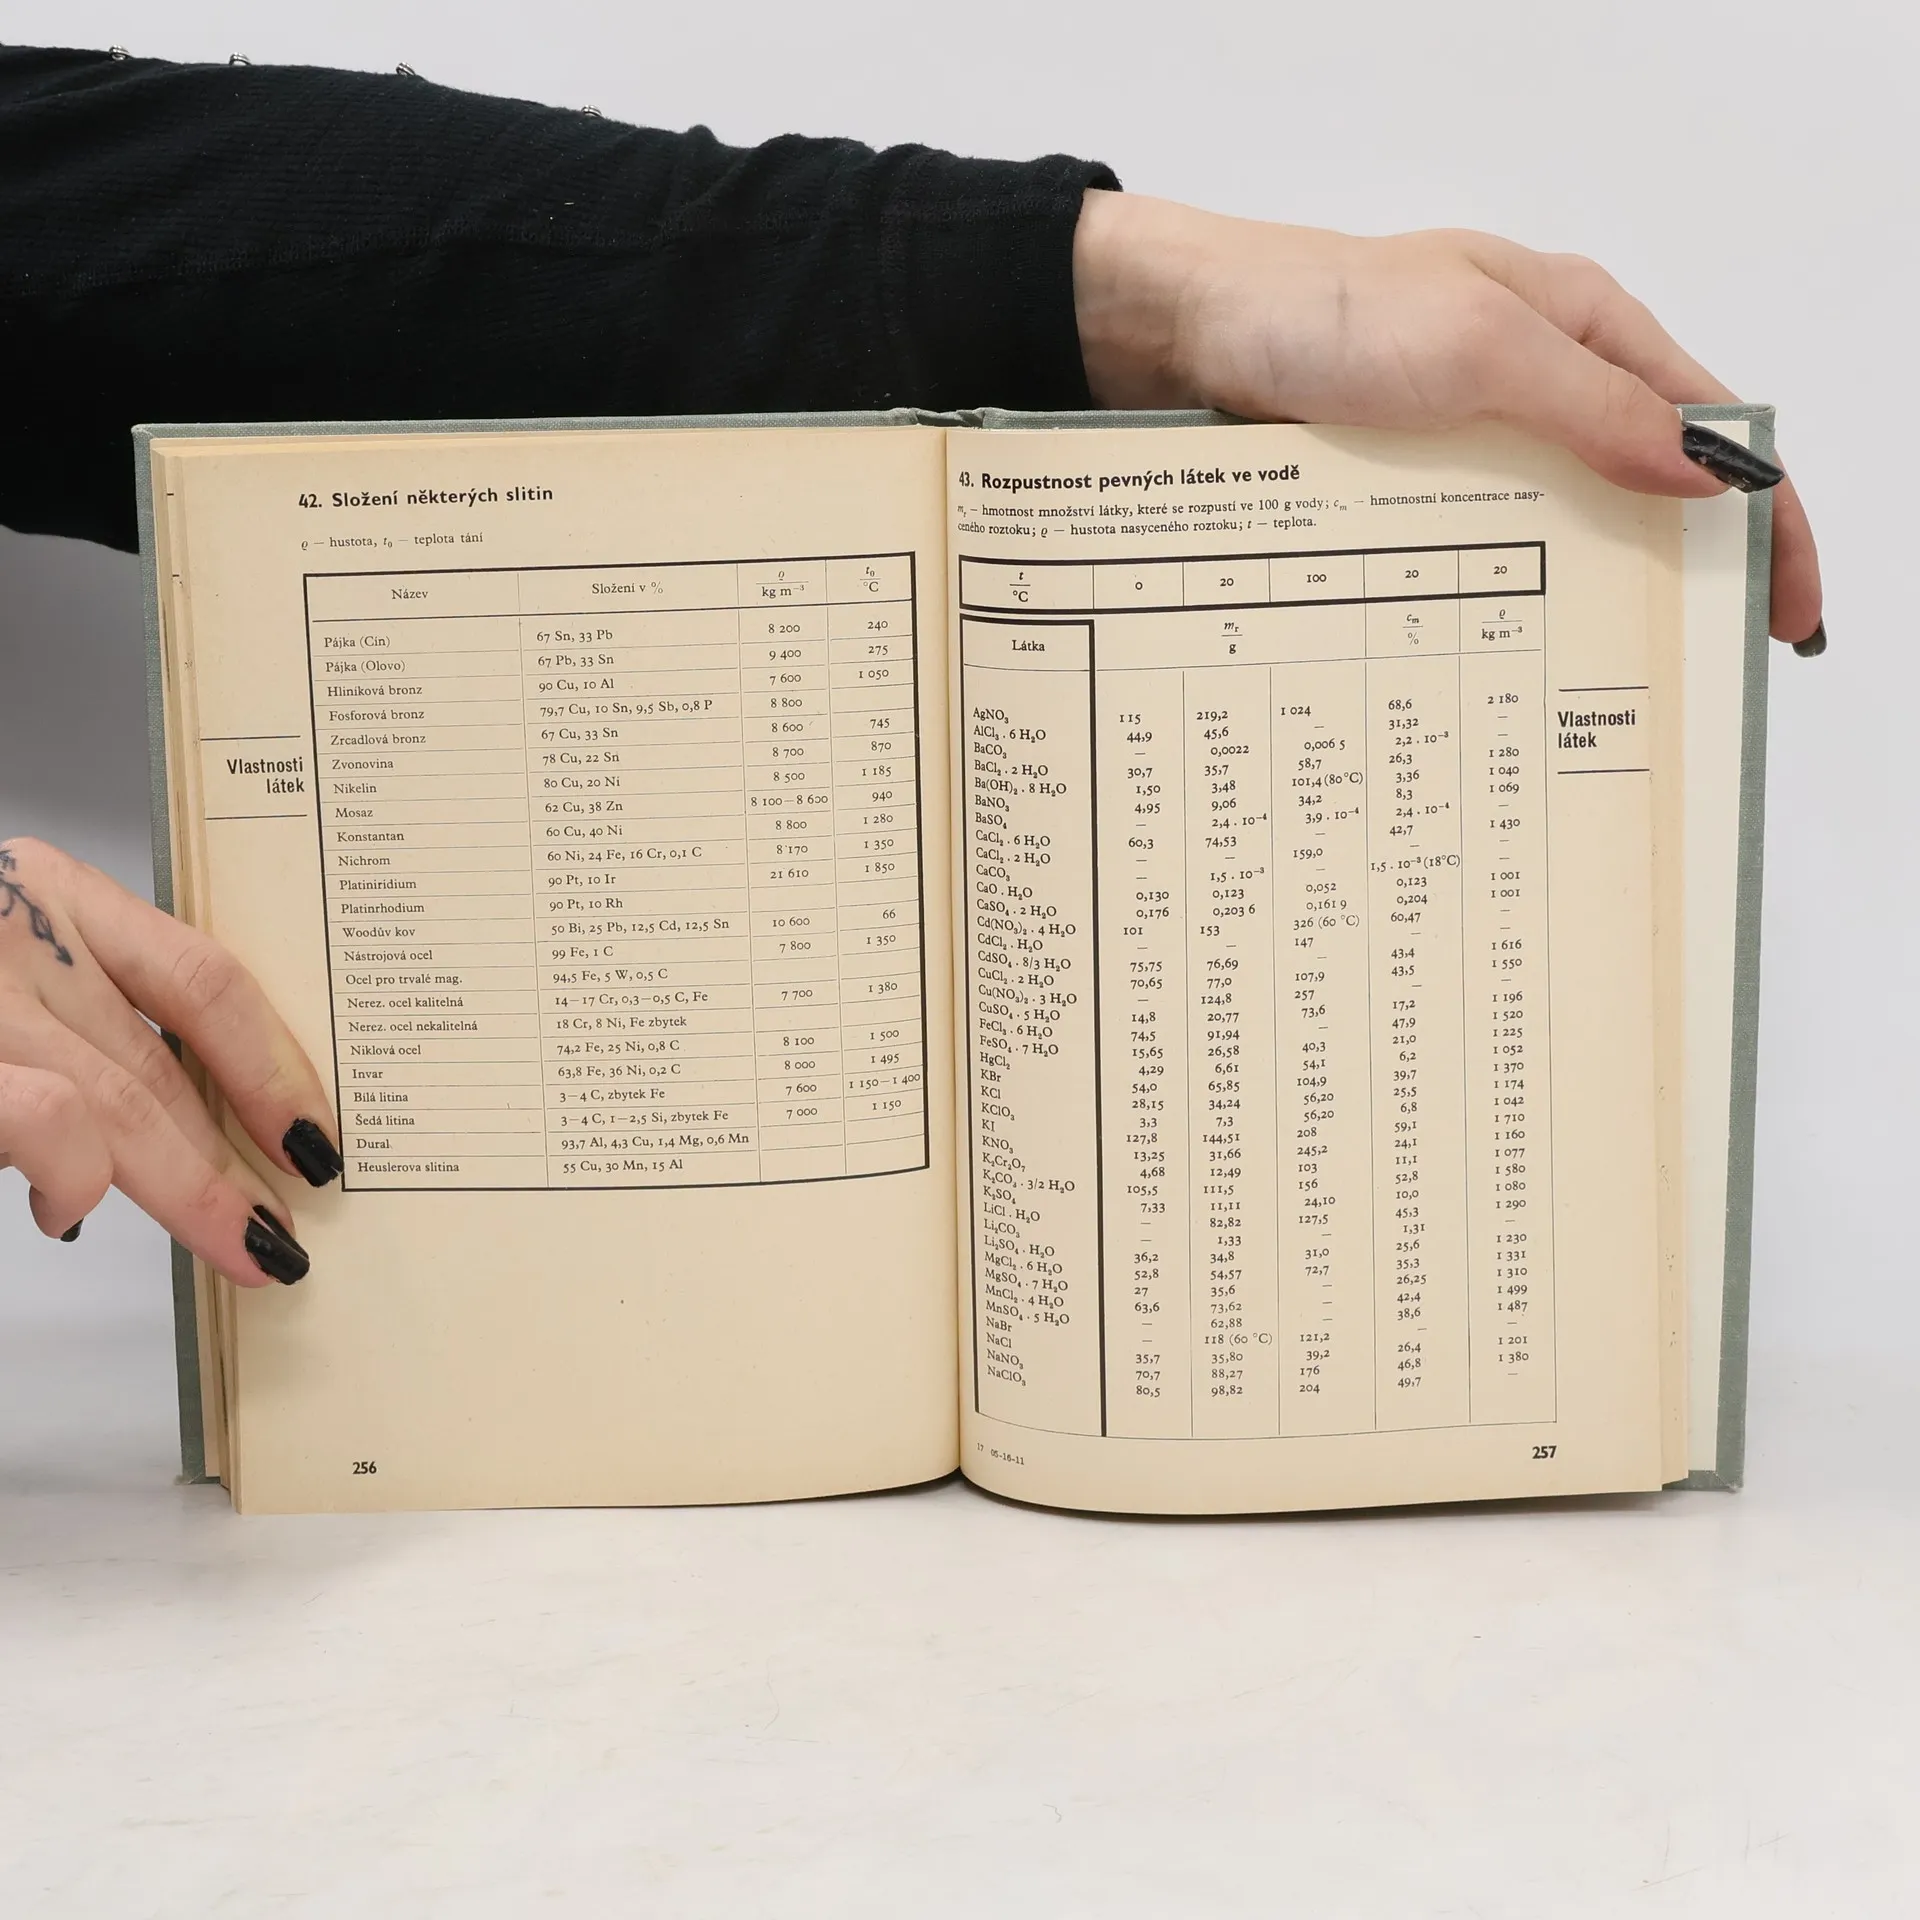 42. Složení některých slitin
ϱ — hustota, t₀ — teplota tání
Název Složení v % ϱ / kg m⁻³ t₀ / °C
Pájka (Cín) 67 Sn, 33 Pb 8 200 240
Pájka (Olovo) 67 Pb, 33 Sn 9 400 275
Hliníková bronz 90 Cu, 10 Al 7 600 1 050
Fosforová bronz 79,7 Cu, 10 Sn, 9,5 Sb, 0,8 P 8 800
Zrcadlová bronz 67 Cu, 33 Sn 8 600 745
Zvonovina 78 Cu, 22 Sn 8 700 870
Nikelin 80 Cu, 20 Ni 8 500 1 185
Mosaz 62 Cu, 38 Zn 8 100—8 600 940
Konstantan 60 Cu, 40 Ni 8 800 1 280
Nichrom 60 Ni, 24 Fe, 16 Cr, 0,1 C 8 170 1 350
Platiniridium 90 Pt, 10 Ir 21 610 1 850
Platinrhodium 90 Pt, 10 Rh
Woodův kov 50 Bi, 25 Pb, 12,5 Cd, 12,5 Sn 10 600 66
Nástrojová ocel 99 Fe, 1 C 7 800 1 350
Ocel pro trvalé mag. 94,5 Fe, 5 W, 0,5 C
Nerez. ocel kalitelná 14—17 Cr, 0,3—0,5 C, Fe 7 700 1 380
Nerez. ocel nekalitelná 18 Cr, 8 Ni, Fe zbytek
Niklová ocel 74,2 Fe, 25 Ni, 0,8 C 8 100 1 500
Invar 63,8 Fe, 36 Ni, 0,2 C 8 000 1 495
Bílá litina 3—4 C, zbytek Fe 7 600 1 150—1 400
Šedá litina 3—4 C, 1—2,5 Si, zbytek Fe 7 000 1 150
Dural 93,7 Al, 4,3 Cu, 1,4 Mg, 0,6 Mn
Heuslerova slitina 55 Cu, 30 Mn, 15 Al
Vlastnosti
látek
256
43. Rozpustnost pevných látek ve vodě
mᵣ — hmotnost množství látky, které se rozpustí ve 100 g vody; cₘ — hmotnostní koncentrace nasy-
ceného roztoku; ϱ — hustota nasyceného roztoku; t — teplota.
t / °C 0 20 100 20 20
Látka mᵣ / g cₘ / % ϱ / kg m⁻³
AgNO₃ 115 219,2 1 024 68,6 2 180
AlCl₃ . 6 H₂O 44,9 45,6 — 31,32 —
BaCO₃ — 0,0022 0,006 5 2,2 . 10⁻³ —
BaCl₂ . 2 H₂O 30,7 35,7 58,7 26,3 1 280
Ba(OH)₂ . 8 H₂O 1,50 3,48 101,4 (80 °C) 3,36 1 040
BaNO₃ 4,95 9,06 34,2 8,3 1 069
BaSO₄ — 2,4 . 10⁻⁴ 3,9 . 10⁻⁴ 2,4 . 10⁻⁴ —
CaCl₂ . 6 H₂O 60,3 74,53 — 42,7 1 430
CaCl₂ . 2 H₂O — — 159,0 —
CaCO₃ — 1,5 . 10⁻³ — 1,5 . 10⁻³ (18°C) —
CaO . H₂O 0,130 0,123 0,052 0,123 1 001
CaSO₄ . 2 H₂O 0,176 0,203 6 0,161 9 0,204 1 001
Cd(NO₃)₂ . 4 H₂O 101 153 326 (60 °C) 60,47 —
CdCl₂ . H₂O — — 147 —
CdSO₄ . 8/3 H₂O 75,75 76,69 — 43,4 1 616
CuCl₂ . 2 H₂O 70,65 77,0 107,9 43,5 1 550
Cu(NO₃)₂ . 3 H₂O — 124,8 257 — —
CuSO₄ . 5 H₂O 14,8 20,77 73,6 17,2 1 196
FeCl₃ . 6 H₂O 74,5 91,94 — 47,9 1 520
FeSO₄ . 7 H₂O 15,65 26,58 40,3 21,0 1 225
HgCl₂ 4,29 6,61 54,1 6,2 1 052
KBr 54,0 65,85 104,9 39,7 1 370
KCl 28,15 34,24 56,20 25,5 1 174
KClO₃ 3,3 7,3 56,20 6,8 1 042
KI 127,8 144,51 208 59,1 1 710
KNO₃ 13,25 31,66 245,2 24,1 1 160
K₂Cr₂O₇ 4,68 12,49 103 11,1 1 077
K₂CO₃ . 3/2 H₂O 105,5 111,5 156 52,8 1 580
K₂SO₄ 7,33 11,11 24,10 10,0 1 080
LiCl . H₂O — 82,82 127,5 45,3 1 290
Li₂CO₃ — 1,33 — 1,31 —
Li₂SO₄ . H₂O 36,2 34,8 31,0 25,6 1 230
MgCl₂ . 6 H₂O 52,8 54,57 72,7 35,3 1 331
MgSO₄ . 7 H₂O 27 35,6 — 26,25 1 310
MnCl₂ . 4 H₂O 63,6 73,62 — 42,4 1 499
MnSO₄ . 5 H₂O — 62,88 — 38,6 1 487
NaBr — 118 (60 °C) 121,2 — —
NaCl 35,7 35,80 39,2 26,4 1 201
NaNO₃ 70,7 88,27 176 46,8 1 380
NaClO₃ 80,5 98,82 204 49,7 —
Vlastnosti
látek
17 05-16-11
257